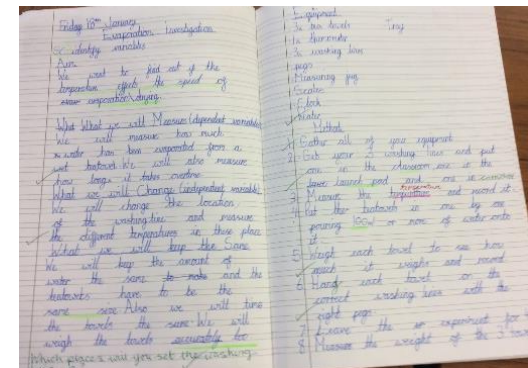 Friday 18th January
Evaporation investigation
identify variables
Aim
We want to find out if the
temperature effects the speed of
evaporation\drying.
What we will Measure (dependent variable)
We will measure how much
water has been evaporated from a
wet teatowel. We will also measure
how long it takes overtime
What we will Change (independent variable)
We will change the location
of the washing line and measure
the different temperatures in these place
What we will keep the Same
We will keep the amount of
water the same and the
teatowels have to be the
same size. Also we will time
the towels the same. We will
weigh the towels accurately too
Which places will you set the washing
Equipment
3x tea towels Tray
1x thermometer
3x washing line
pegs
Measuring jug
Scales
Clock
Water
Method
1 Gather all of your equipment
2 Get your 3 washing lines and put
one in the classroom one in the
launch pad and one in
3 Measure the temperature and record it.
4 Get the teatowels in one by one
pouring 100ml or more of water onto
it
5 Weigh each towel to see how
much it weighs and record
6 each towel on the
correct washing line with the
right pegs
7 Leave the experiment for
8 Measure the weight of the 3